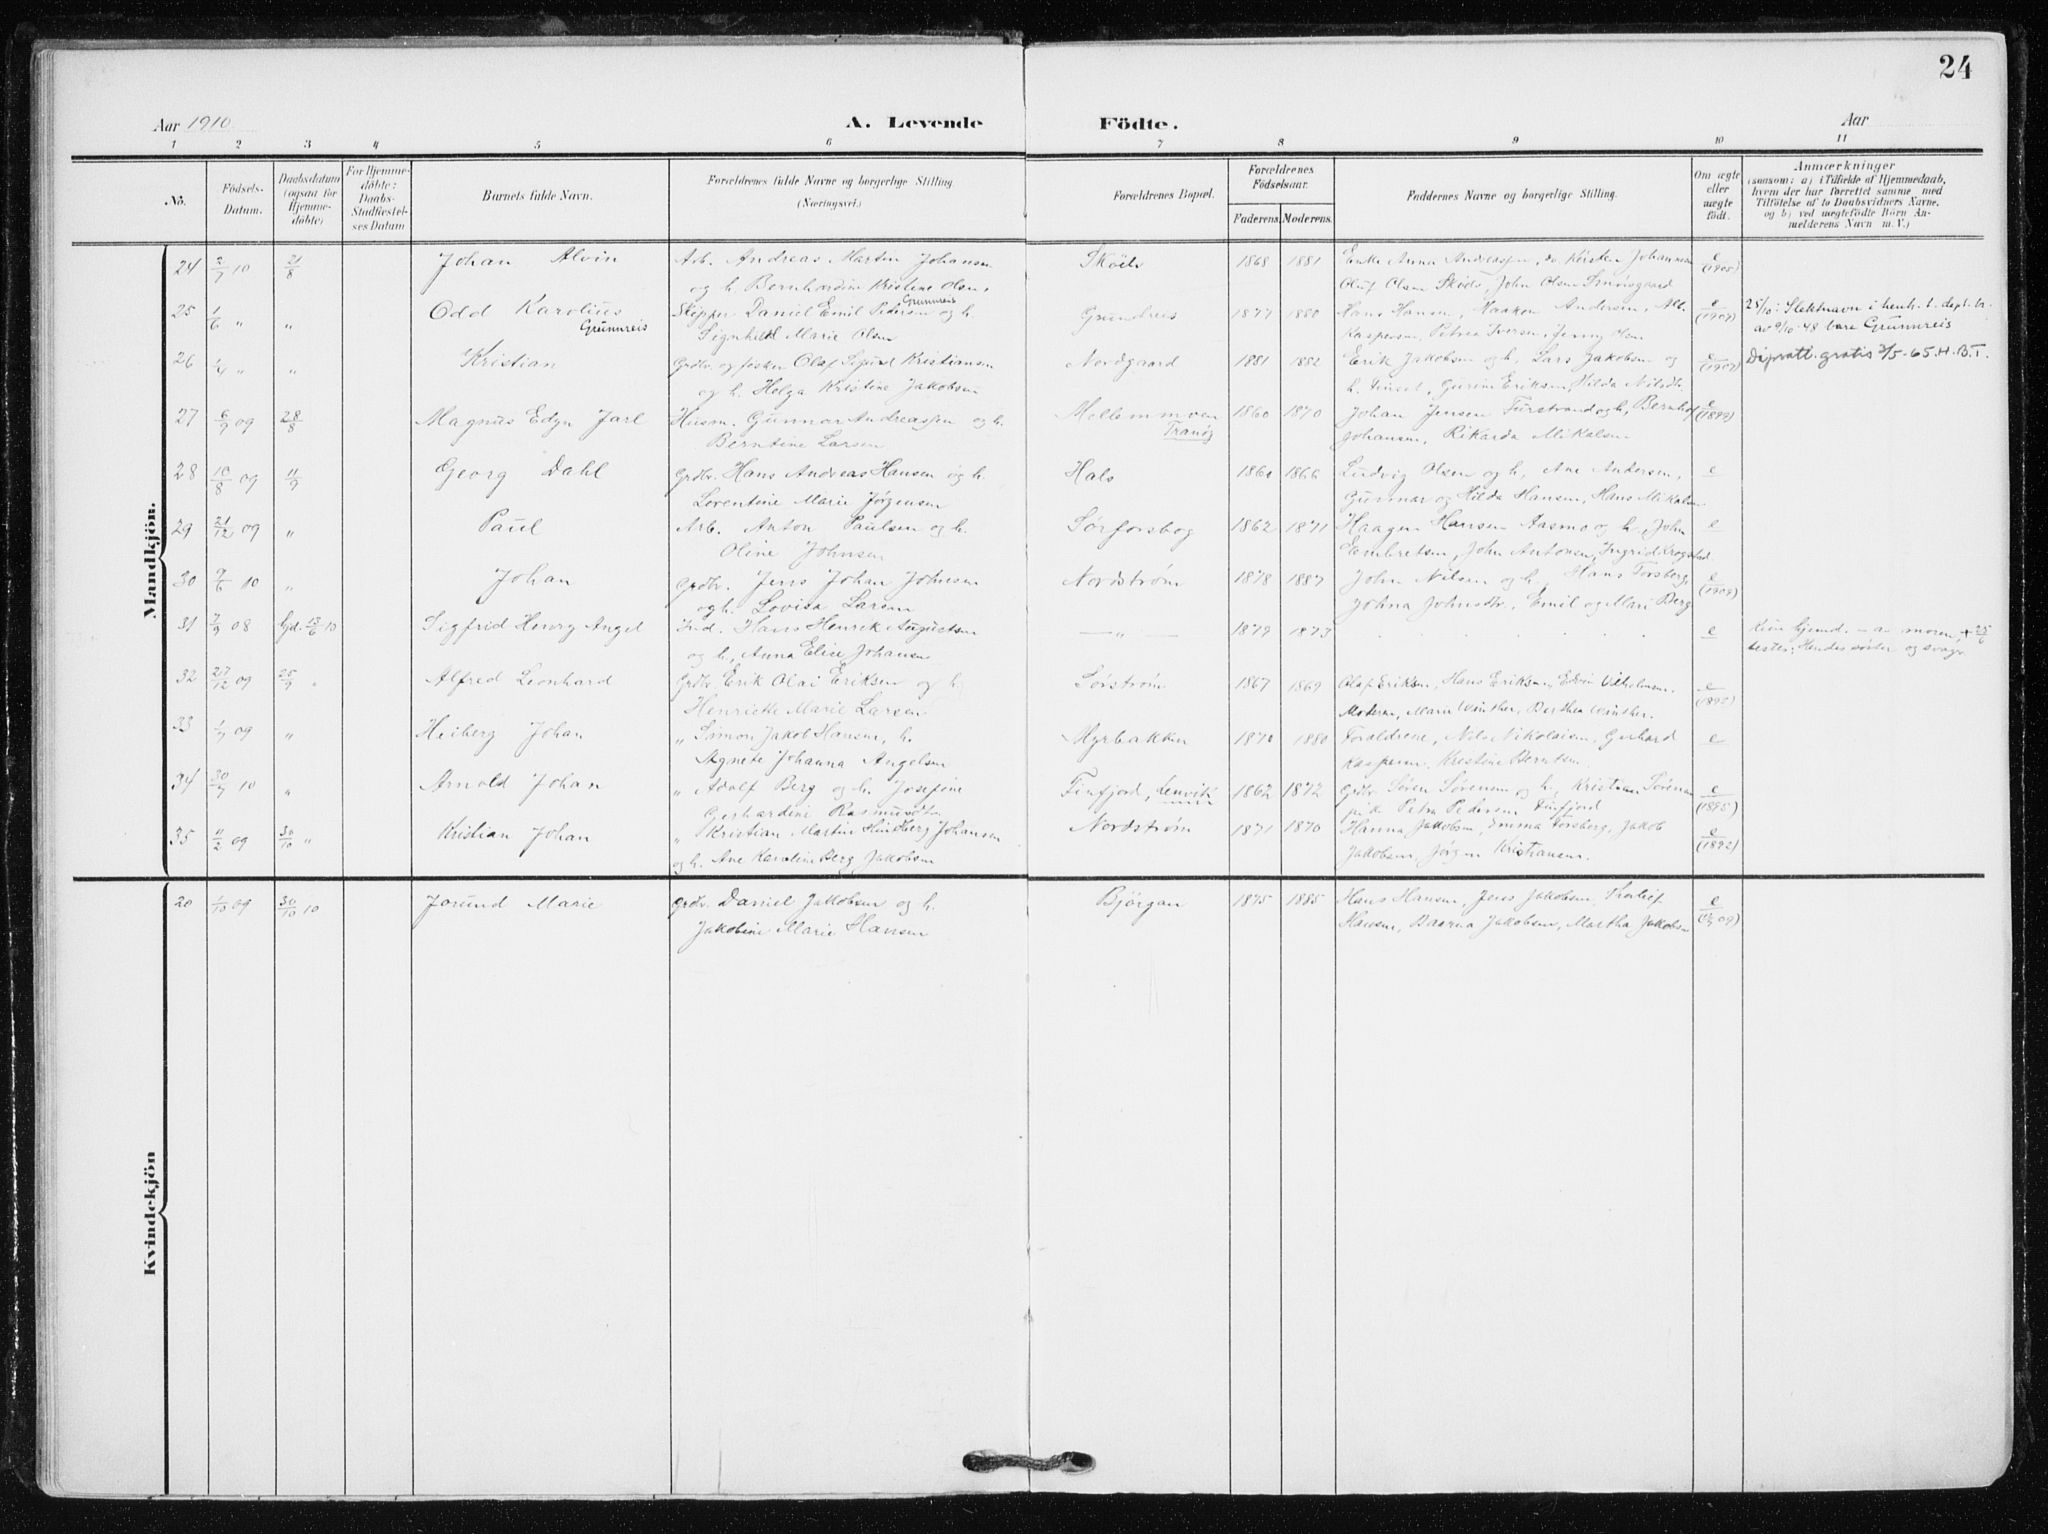 24
Aar 1910
A. Levende Födte.
Aar
1 2 3 4 5 6 7 8 9 10 11
No.
Födsels-
Datum.
Daabsdatum
(ogsaa for
Hjemme-
döbte)
For Hjemme-
döbte:
Daabs-
Stadfæstel-
ses Datum
Barnets fulde Navn.
Forældrenes fulde Navne og borgerlige Stilling.
(Næringsvei.)
Forældrenes Bopæl.
Forældrenes
Födselsaar.
Faderens. Moderens.
Faddernes Navne og borgerlige Stilling.
Om ægte
eller
uægte
födt.
Anmærkninger
(saasom: a) i Tilfælde af Hjemmedaab,
hvem der har forrettet samme med
Tilföielse af to Daabsvidners Navne,
og b) ved uægtefödte Börn An-
melderens Navn m. V.)
Mandkjön.
24 2/7 10 21/8 Johan Alvin Arb. Andreas Martin Johansen Sköelv 1868 1881 Enke Anna Andreassen, Kristen Johannsen e
og h. Bernhardine Kristine Olsen Oluf Olsen John Olsen (1905)
25 1/6 " " Odd Karolius Skipper Daniel Emil Pedersen og h. Grundreis 1877 1880 Hans Hansen, Haakon Andersen, Alb. e 25/10: Slektnavn i henh. t. dept. br.
Grunnreis Grunnreis Signhild Marie Olsen Kaspersen, Petrea Iversen, Jenny Olsen (1907) av 9/10-48 bare Grunnreis
26 1/4 " " Kristian Grdbr. og fisker Olaf Sigurd Kristiansen Nordgaard 1881 1882 Erik Jakobsen og h., Lars Jakobsen og e Dåpsatt. gratis 3/5-65. H.B.T.
og h. Helga Kristine Jakobsen h. Eriksen, Hilda (1907)
27 6/9 09 28/8 Magnus Edyn Jarl Husm. Gunnar Andreassen og h. Mellemmoen 1860 1870 Johan Jensen Furstrand og h., Bernhof e
Berntine Larsen Tranöy Johansen, Rikarda Mikalsen (1899)
28 10/8 09 11/9 Georg Dahl Grdbr. Hans Andreas Hansen og h. Hals 1860 1866 Ludvig Olsen og h., Ane Andersen, e
Lorentine Marie Jørgensen Gunnar og Hilda Hansen, Hans Mikalsen
29 21/12 09 " Paul Arb. Anton Paulsen og h. Sørforsbog 1862 1871 Haagen Hansen Aasmo og h., John e
Oline Johnsen Lambretsen, John Antonsen, Ingrid Krogstad
30 9/6 10 " Johan Grdbr. Jens Johan Johnsen Nordstrøm 1878 1887 John Nilsen og h., Hans Forsberg, e
og h. Lovisa Larsen Johna Johnsdtr. Emil og Mari Berg (1909)
31 7/9 08 hjd. 13/6 10 Sigfrid Henry Angel Ind. Hans Henrik Augustsen — " — 1879 1873 e Kun hjemd. - a. moren, + 25/6
og h. Anna Elise Johansen testes: Hendes söster og svoger
32 27/12 09 25/9 " Alfred Leonhard Grdbr. Erik Olai Eriksen og h. Sørstrøm 1867 1869 Olaf Eriksen, Hans Eriksen, Edvin Vilhelmsen. e
Henriette Marie Larsen Moderen, Marie Winther, Berthea Winther. (1892)
33 1/7 09 " Heiberg Johan " Simon Jakob Hansen, h. Myrbakken 1870 1880 Foraldrene, Nils Nikolaisen, Gerhard e
Agnete Johanna Angelsen Kaspersen, Kristine Berntsen
34 30/7 10 " Arnold Johan " Adolf Berg og h. Josefine Finfjord, Lenvik 1862 1872 Grdbr. Søren Sørensen og h., Kristian Sørensen e
Gerhardine Rasmusdtr. pik. Petra Pedersen Finfjord (1895)
35 11/2 09 30/10 " Kristian Johan " Kristian Martin Johansen Nordstrøm 1871 1870 Hanna Jakobsen, Emma Forsberg, Jakob e
og h. Ane Karoline Berg Jakobsen Jakobsen, Jørgen Kristiansen. (1892)
Kvindekjön
20 1/10 09 30/10 10 Jorund Marie Grdbr. Daniel Jakobsen og h. Björgan 1875 1885 Hans Hansen, Jens Jakobsen, Thorleif e
Jakobine Marie Hansen Hansen, Jakobsen, Martha Jakobsen